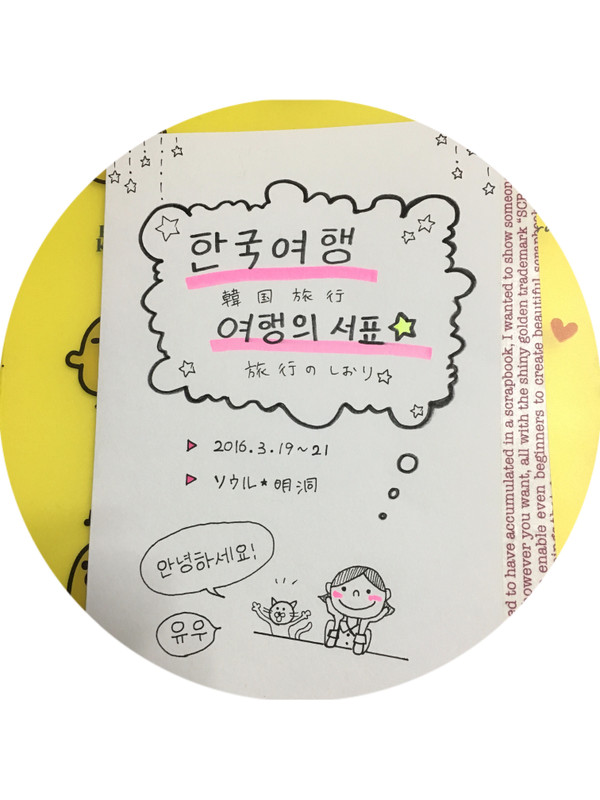 한국여행
韓国旅行
여행의 서표
旅行のしおり
2016.3.19~21
ソウル★明洞
안녕하세요!
유우
ed to have accumulated in a scrapbook, I wanted to show someon
however you want, all with the shiny golden trademark "SCR
enable even beginners to create beautiful scrapbook